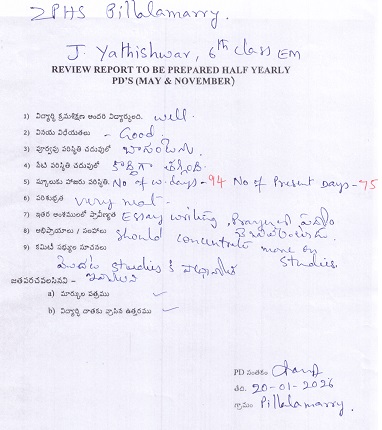 ZPHS Pillalamarry.
J. Yathishwar, 6th class EM
REVIEW REPORT TO BE PREPARED HALF YEARLY
PD'S (MAY & NOVEMBER)
1) విద్యార్థి క్రమశిక్షణ ఇందరి విద్యార్థులది. well.
2) వినయ విధేయతలు - Good.
3) పూర్వపు పరిస్థితి చదువులో బాగుంటుంది.
4) నేటి పరిస్థితి చదువులో కొద్దిగా తగ్గింది.
5) స్కూలుకు హాజరు పరిస్థితి. No of w. days - 94 No of Present Days - 75
6) పరిశుభ్రత very neat.
7) ఇతర అంశములలో ప్రావీణ్యత Essay writing, Prayer
8) అభిప్రాయాలు / సలహాలు should concentrate more on
9) కమిటీ సభ్యుల సూచనలు studies.
studies కి
జతపరచవలసినవి -
a) మార్కుల పత్రము
b) విద్యార్థి దాతకు వ్రాసిన ఉత్తరము
PD సంతకం
తేది. 20-01-2026
గ్రామం Pillalamarry.